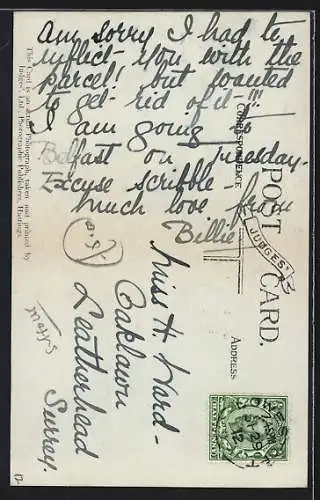 Am sorry I had to
inflict - you with the
parcel! but wanted
to get - rid of it - !!!
I am going to
Belfast on Tuesday -
Excuse scribble -
much love from
Billie
This Card is an actual Photograph, taken and printed by
Judges, Ltd., Photographic Publishers, Hastings.
CORRESPONDENCE
POST CARD.
JUDGES'
ADDRESS
Miss H Ward -
Oaklawn
Leatherhead
Surrey.
29
12